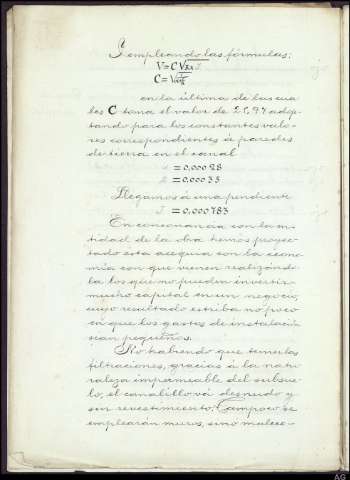 Y empleando las fórmulas:
V = C √
C = √
en la última de las cua-
les C toma el valor de 21,97 adop-
tando para las constantes valo-
res correspondientes á paredes
de tierra en el canal
= 0,00028
= 0,00035
Llegamos á una pendiente
I = 0,000783
En consonancia con la en-
tidad de la obra hemos proyec-
tado esta acequia con la econo-
mía con que vienen
los que no pueden invertir
mucho capital en un negocio,
cuyo resultado estriba no poco
en que los gastos de instalación
sean pequeños.
No habiendo que temer las
filtraciones, gracias á la natu-
raleza impermeable del subsue-
lo, el canalillo vá desnudo y
sin revestimiento. Tampoco se
emplearán muros, sino
AG